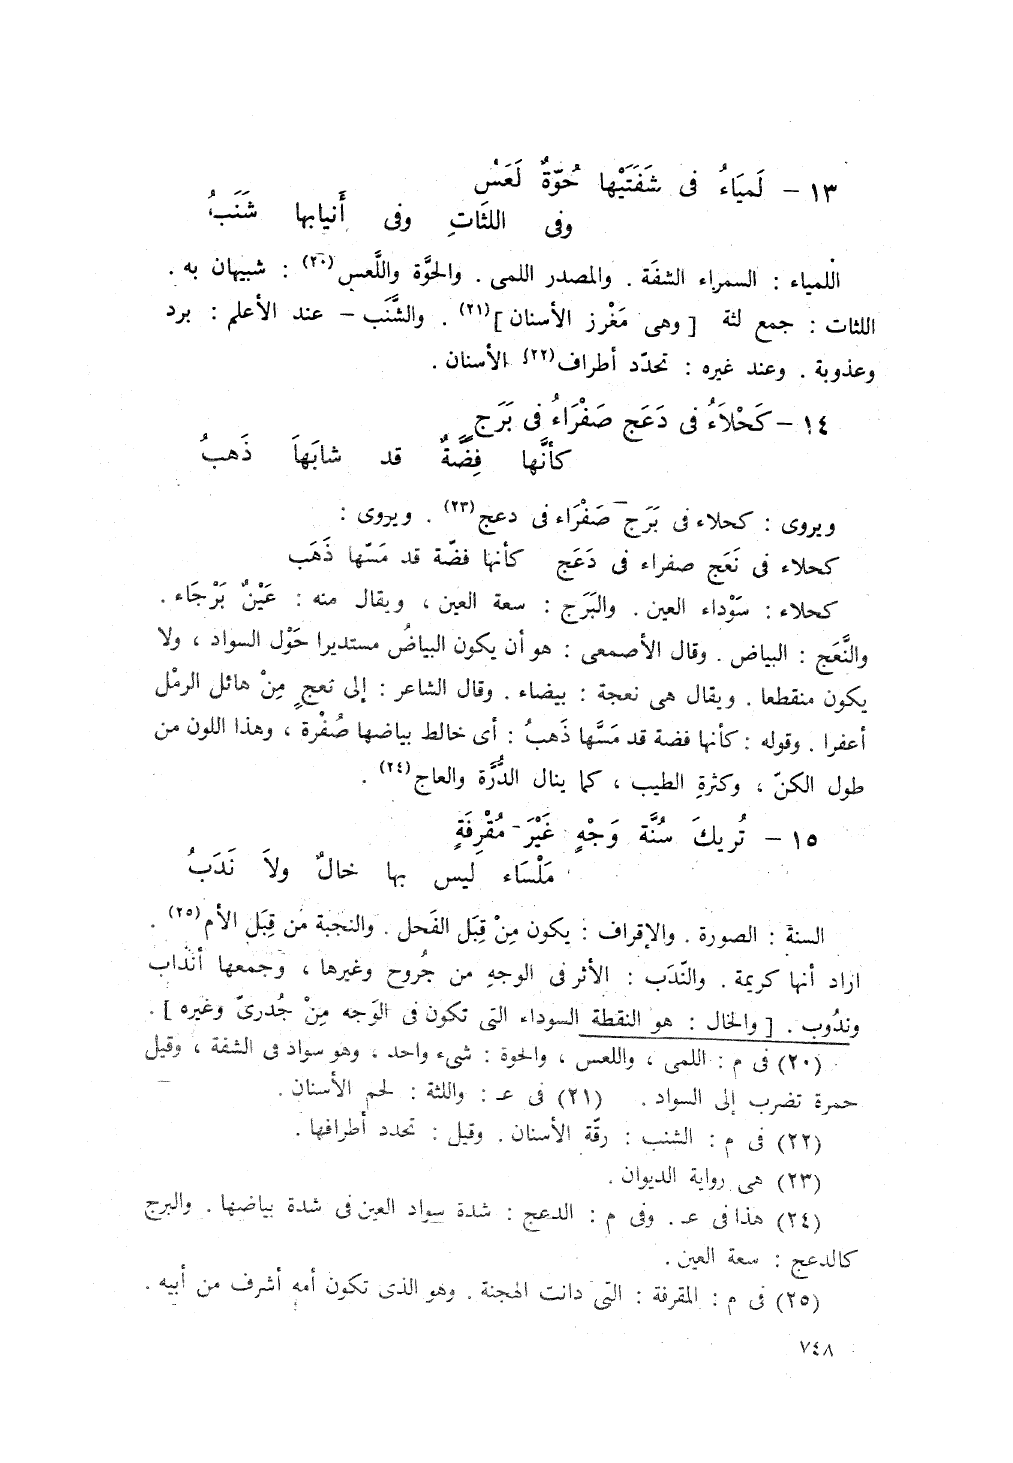 ١٣ - لَمياَءُ فى شَفَتَيْها حُوّةٌ لَعَسُ
وفى اللثَاتِ وفى أَنيابها شَنَبُ
اللمياء : السمراء الشفَة . والمصدر اللمى . والحوَّة واللَّعس (٢٠) : شبيهان به .
اللثات : جمع لثة [ وهى مَغْرز الأسنان ] (٢١) . والشَّنَب - عند الأعلم : برد
وعذوبة . وعند غيره : تحدّد أطراف (٢٢) الأسنان .
١٤ - كَحْلاَءُ فى دَعَجٍ صَفْرَاءُ فى بَرَجٍ
كأنَّها فِضَّةٌ قد شابَهاَ ذَهبُ
ويروى : كحلاء فى بَرَج صَفْرَاء فى دعج (٢٣) . ويروى :
كحلاء فى نَعَج صفراء فى دَعَج كأنها فضّة قد مَسّها ذَهَب
كحلاء : سَوْداء العين . والبَرَج : سعة العين ، ويقال منه : عَيْنٌ بَرْجَاء .
والنَّعَج : البياض . وقال الأصمعى : هو أن يكون البياضُ مستديرا حَوْل السواد ، ولا
يكون منقطعا . ويقال هى نعجة : بيضاء . وقال الشاعر : إلى نعجٍ مِنْ هائل الرمْل
أعفرا . وقوله : كأنها فضة قد مَسَّها ذَهبُ : أى خالط بياضها صُفْرة ، وهذا اللون من
طول الكنّ ، وكثرةِ الطيب ، كما ينال الدُّرَّة والعاج (٢٤) .
١٥ - تُريكَ سُنَّة وَجْهٍ غَيْرَ مُقْرِفَةٍ
مَلْسَاء ليس بها خالٌ ولاَ نَدَبُ
السنة : الصورة . والإقراف : يكون مِنْ قِبَل الفَحل . والنجبة من قِبَل الأم (٢٥) .
اراد أنها كريمة . والنّدَب : الأثر فى الوجهِ من جُروح وغيرها ، وجمعها أنْداب
وندُوب . [ والخال : هو النقطة السوداء التى تكون فى الوَجه مِنْ جُدرىّ وغيره ] .
(٢٠) فى م : اللمى ، واللعس ، والحوة : شىء واحد ، وهو سواد فى الشفة ، وقيل
حمرة تضرب إلى السواد . (٢١) فى عـ : واللثة : لحم الأسنان .
(٢٢) فى م : الشنب : رقّة الأسنان . وقيل : تحدد أطرافها .
(٢٣) هى رواية الديوان .
(٢٤) هذا فى عـ . وفى م : الدعج : شدة سواد العين فى شدة بياضها . والبرج
كالدعج : سعة العين .
(٢٥) فى م : المقرفة : التى دانت الهجنة . وهو الذى تكون أمه أشرف من أبيه .
٧٤٨